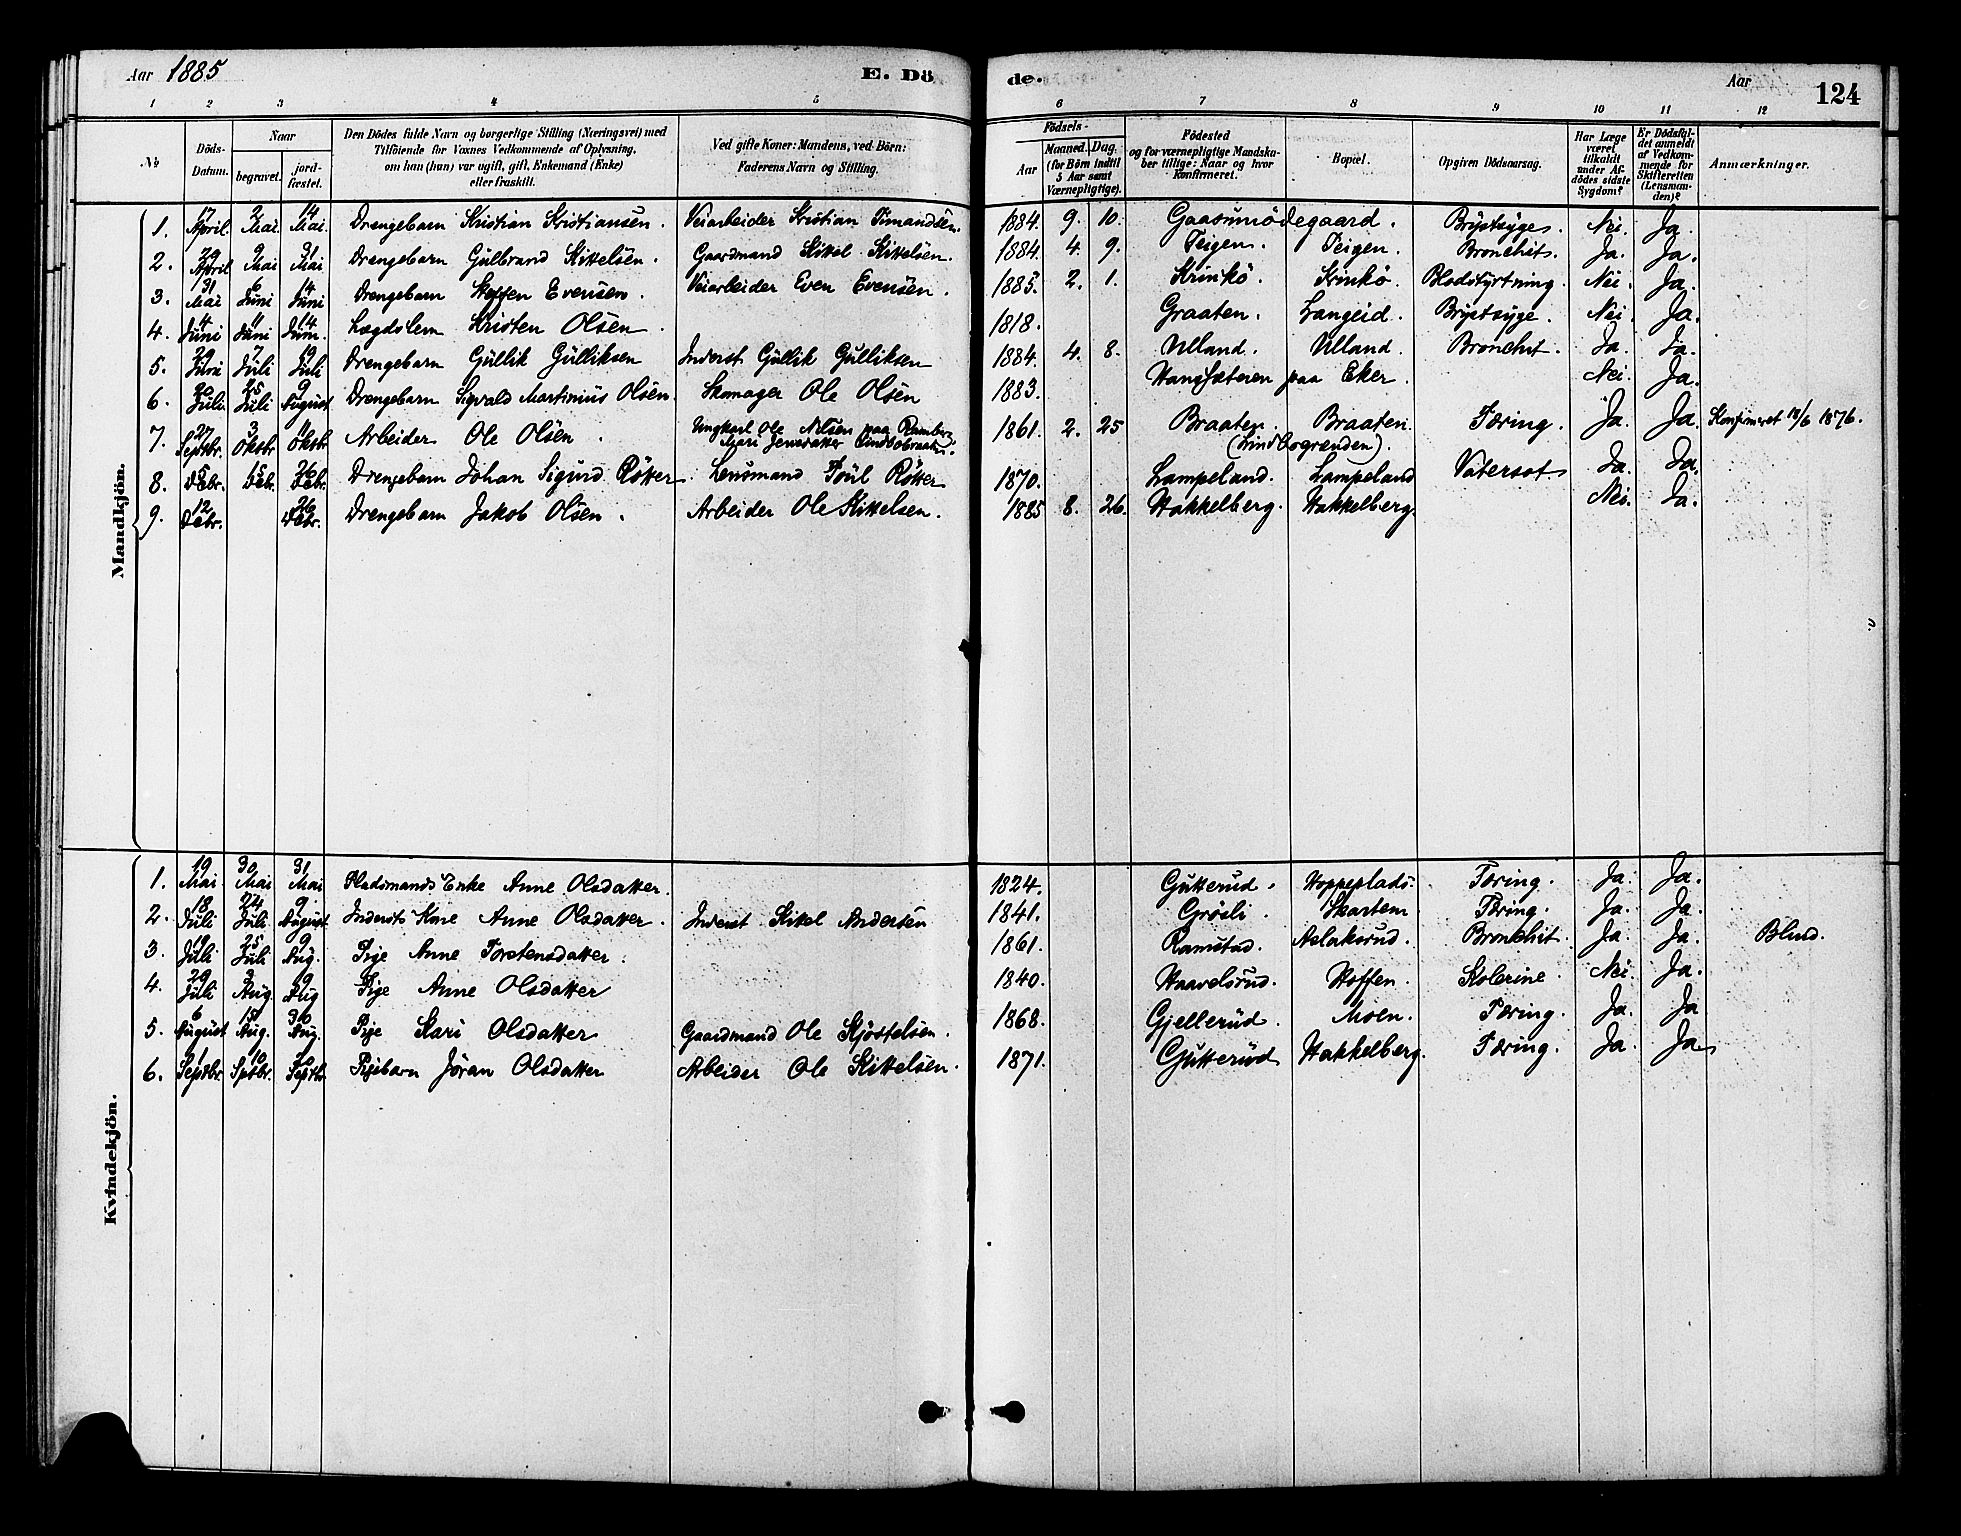 Aar 1885 E. Dö de. Aar 124
1 2 3 4 5 6 7 8 9 10 11 12
№ Döds-Datum. Naar begravet. jordfæstet. Den Dödes fulde Navn og borgerlige Stilling (Næringsvei) med Tilföiende for Voxnes Vedkommende af Oplysning, om han (hun) var ugift, gift, Enkemand (Enke) eller fraskilt. Ved gifte Koner: Mandens, ved Börn: Faderens Navn og Stilling. Födsels- Aar Maaned. Dag. (for Börn indtil 5 Aar samt Værnepligtige). Födested og for værnepligtige Mandskaber tillige: Naar og hvor Konfirmeret. Bopæl. Opgiven Dödsaarsag. Har Læge været tilkaldt under Afdödes sidste Sygdom? Er Dödsfaldet anmeldt af Vedkommende for Skifteretten (Lensmanden)? Anmærkninger.
Mandkjön.
1. 17 April. 2 Mai. 14 Mai. Drengebarn Kristian Kristiansen. Veiarbeider Kristian Timandsen. 1884. 9. 10. Gaasumödegaard. Brystsyge. Nei. Ja.
2. 29 April 9 Mai 31 Mai Drengebarn Gulbrand Kittelsen. Gaardmand Kittel Kittelsen. 1884. 4. 9. Teigen. Teigen. Bronchit. Ja. Ja.
3. 31 Mai 6 Juni 14 Juni Drengebarn Steffen Evensen. Veiarbeider Even Evensen. 1885. 2. 1. Krinkö. Krinkö. Blodstyrtning. Nei. Ja.
4. 4 Juni 11 Juni 14 Juni. Lægdslem Kristen Olsen. 1818. Graaten. Langeid. Brystsyge. Nei. Ja.
5. 29 Juni 7 Juli 19 Juli Drengebarn Gullik Gulliksen Inderst Gullik Gulliksen 1884. 4. 8. Ulland. Ulland. Bronchit. Ja. Ja.
6. Juli. 25 Juli 9 August Drengebarn Sigvald Martinius Olsen. Skomager Ole Olsen 1883. Hangsæteren paa Eker. Nei. Ja.
7. 27 Septbr. 3 Oktbr 11 Oktbr Arbeider Ole Olsen. Ungkarl Ole Nilsen paa Ramberg Mari Jensdatter Lindbobraaten. 1861. 2. 25 Braaten. Braaten. (Lindbogrænden). Tæring. Ja. Ja. Konfirmeret 18/6 1876.
8. 5 Debr. 15 Debr. 26 Debr. Drengebarn Johan Sigurd Rökker. Lensmand Joül Rökker 1870. Lampeland. Lampeland Vatersot. Ja. Ja.
9. 12 Debr. 26 Debr. Drengebarn Jakob Olsen. Arbeider Ole Kittelsen. 1885 8. 26. Hakkelberg. Hakkelberg. Nei. Ja.
Kvindekjön.
1. 19 Mai 30 Mai 31 Mai Pladsmands Enke Anne Olsdatter. 1824. Gutterud. Hoppeplads. Tæring. Ja. Ja.
2. 18 Juli 24 Juli 9 August Indersts Kone Anne Olsdatter. Inderst Kittel Andersen 1841. Grösli. Skartem Tæring. Ja. Ja.
3. 19 Juli 25 Juli 9 Aug. Pige Anne Torstensdatter. 1861. Ramstad. Aslaksrud. Bronchit. Ja. Ja. Blind.
4. 29 Juli 3 Aug. 9 Aug Pige Anne Olsdatter 1840. Haavelsrud. Hoffen. Kolerine. Nei. Ja.
5. 6 August 15 Aug. 30 Aug. Pige Kari Olsdatter Gaardmand Ole Kjöstelsen. 1868. Gjellerud. Moen. Tæring. Ja. Ja
6. 1 Septbr. 10 Sptbr. Septbr. Pigebarn Jöran Olsdatter Arbeider Ole Kittelsen. 1871. Gutterud Hakkelberg. Tæring. Ja. Ja